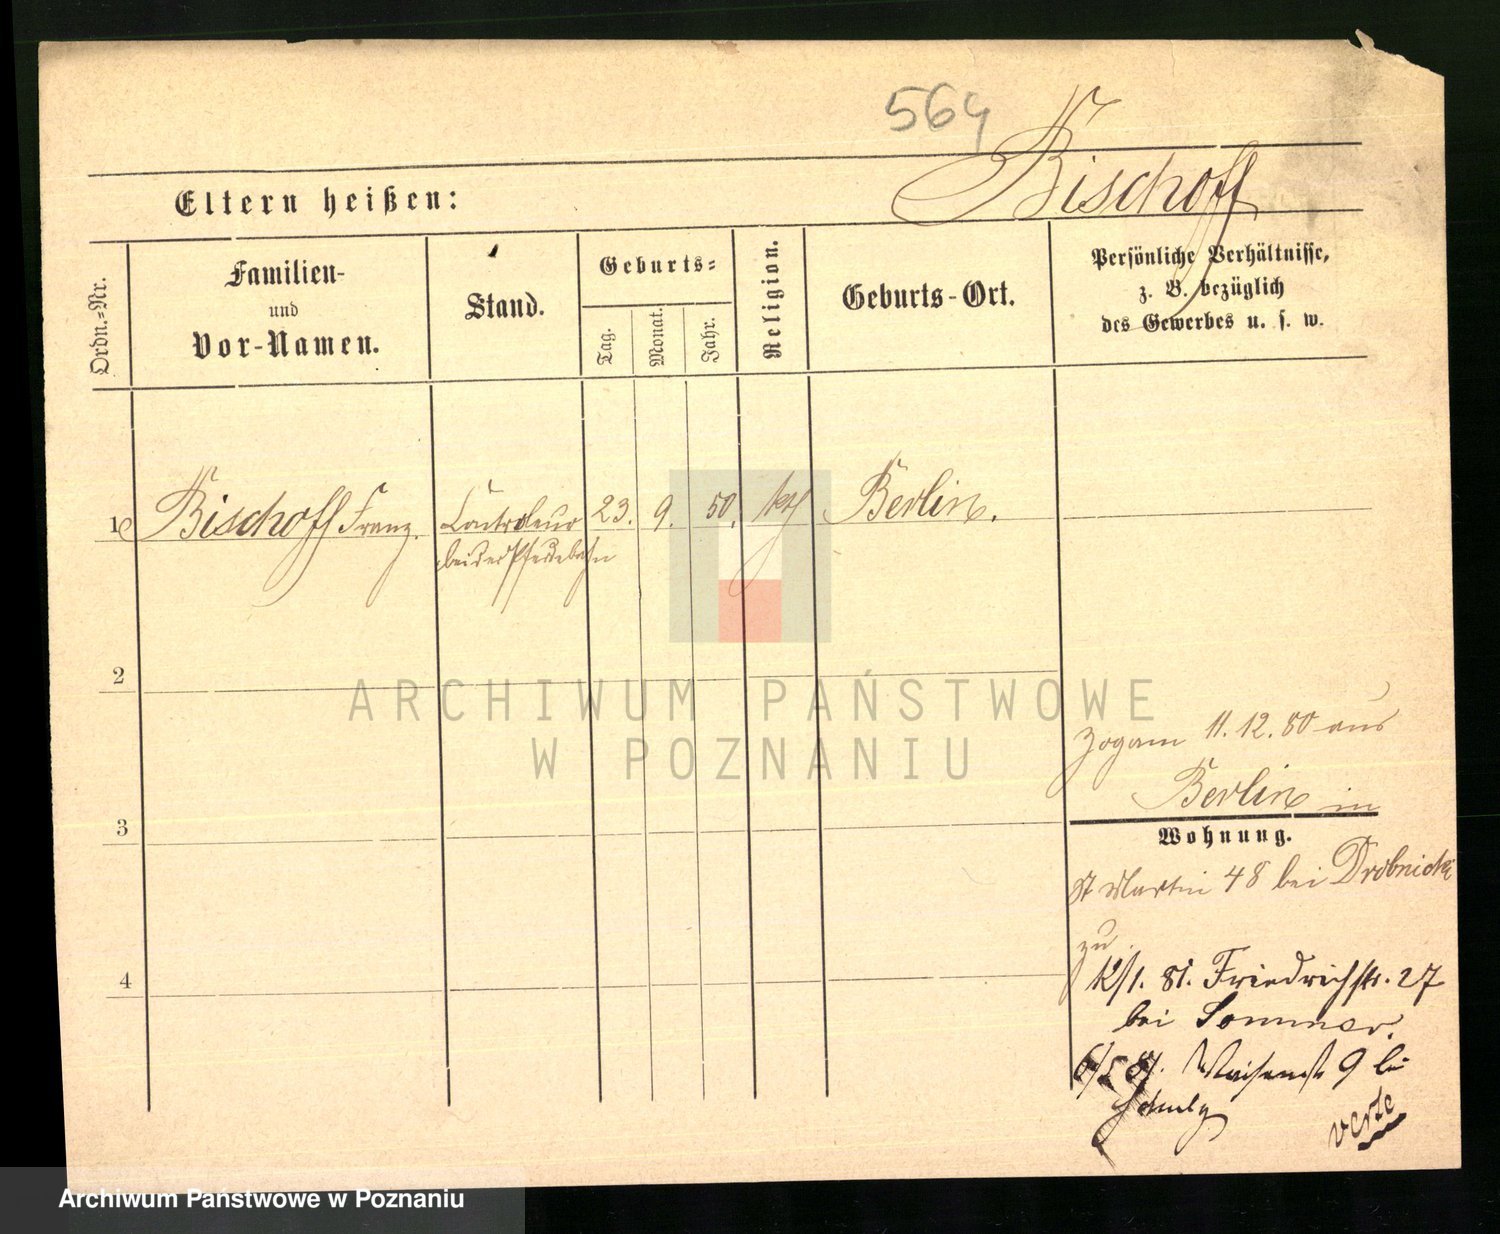 564
Bischoff
Eltern heißen:
Ordn.-Nr.
Familien-
und
Vor-Namen.
Stand.
Geburts-
Tag.
Monat.
Jahr.
Religion.
Geburts-Ort.
Persönliche Verhältnisse,
z. B. bezüglich
des Gewerbes u. s. w.
1 Bischoff Franz. Controleur 23. 9. 50. kth Berlin.
bei der Pferdebahn
2
3
4
Zogam 11. 12. 80 aus
Berlin in
Wohnung.
St Martin 48 bei Drobnicki
zu
12/1. 81. Friedrichstr. 27
bei Sommer.
6/5 81. Waisenst 9 bei
Schulz
verte
ARCHIWUM PAŃSTWOWE
W POZNANIU
Archiwum Państwowe w Poznaniu